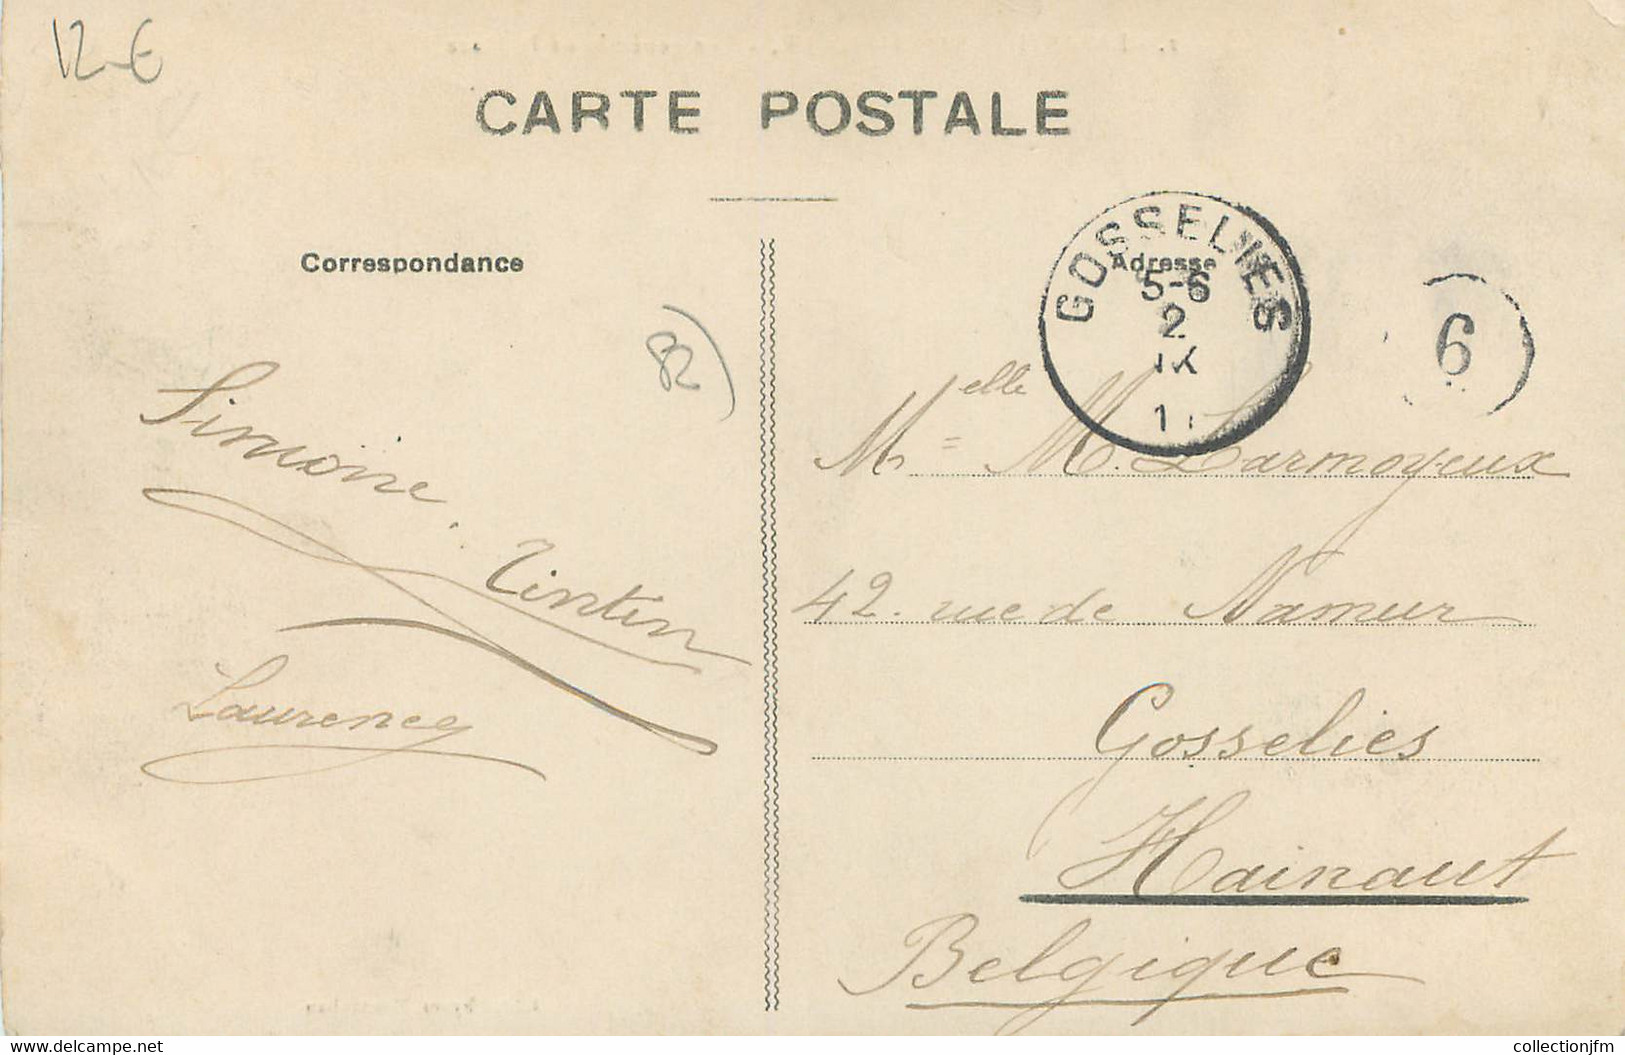 12-€
CARTE POSTALE
Correspondance
Adresse
GOSSELIES
5-6
2
IX
6
82
Simone, Tintin
Laurency
Melle M. Larmoyeux
42. rue de Namur
Gosselies
Hainaut
Belgique
collectionjfm